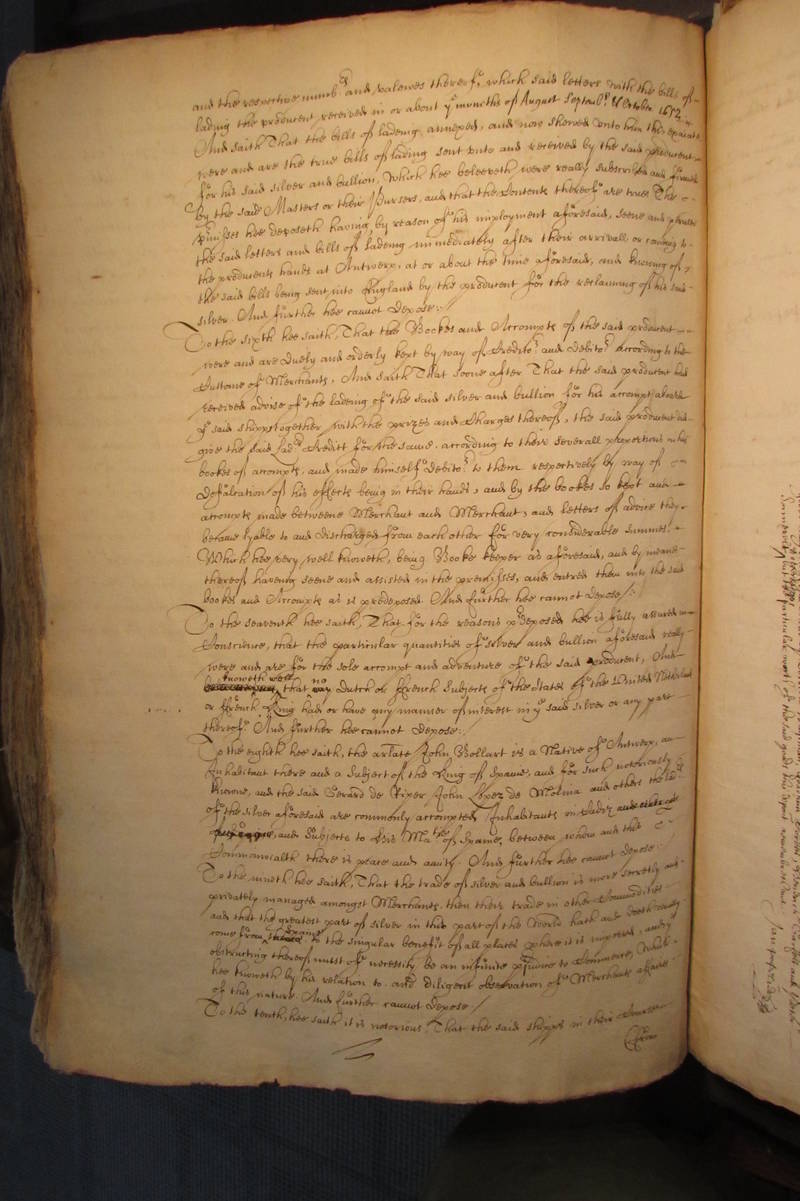 and the respective numb:rs and valewes thereof, which said letters with the bills of
lading the producent received in or about ye moneths of August Septemb:r & October 1652
And saith That the bills of lading annexed, and now shewed unto him this
were and are the true bills of lading sent unto and received by the said producent
for his said silver and bullion, Which hee beleeveth were really subscribed and firmed
by the said Masters or their Pursers, and that the Contents thereof are true The
premisses hee deposeth having by reason of his imployment aforesaid, seene and perused
the said letters and bills of lading immediately after their arrivall or coming to
the producents hands at Antwerp, at or about the time aforesaid, and knowing of
the said bills being sent into England by the producent for the reclaiming of his said
silver. And further hee cannot depose./
To the sixth hee saith, That the Bookes and Accompts of the said producent
were and are duely and orderly kept by way of Creditor and Debitor according to the
Custome of Merchants, And saith That soone after That the said producent had
received advise of the lading of the said silver and bullion for his accompt aboard
ye said shipps together with the prizes and Charges thereof, the said producent did
give the said Creditt for the same according to their severall proportions in his
bookes of accompts, and made himself Debitor to them respectively by way of
Defalcation of his effects being in their hands, and by the bookes so kept and
accompts made betweene Merchant and Merchant, and letters of advice they
became lyable to and discharged from each other for very considerable summes.
Which hee very well knoweth, being Booke keeper as aforesaid, and by meanes
thereof having seene and assisted in the premisses, and entred them into the said
bookes and Accompts as is predeposed And further hee cannot depose./
To the seaventh hee saith, That for the reasons predeposed hee is fully assured in
Conscience, that the particular quantities of silver and bullion aforesaid really
were and are for the sole accompt and adventure of the said producent, And
knoweth well that no Dutch or French Subjects of the States of the United Netherlands
or French King had or have any manner of interest in ye said silver or any part
thereof. And further hee cannot depose./
To the eighth hee saith, the arlate John Bollart is a Native of Antwerp, an
Inhabitant there and a Subject of the King of Spaine, and for such notoriously
knowne, and the said Gerard de Pixer John Lopez de Molina and others the
of the silver aforesaid are commonly accompted Inhabitants in Cadiz
and Subjects to his Ma:tie of Spaine, between whom and this
Commonwealth there is peace and amity. And further hee cannot depose.
To the nineth hee saith, That the trade of silver and bullion is more secretly and
privately managed amongst Merchants, then their trade in other Commodities
and that the greatest part of silver in this part of the World hath and doth
come from Spaine to the singular benefit of all places where it is imported, and ye
obstructing thereof must of necessity be an infinite prejudice to Commerce, Which
hee knoweth by his relation to and diligent observation of Merchants affaires
of this nature. And further cannot depose./
To the tenth, hee saith it is notorious, That the said shipps in their Course
from